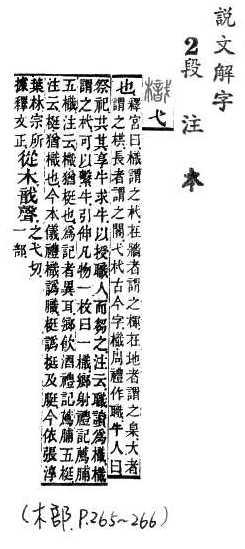 説文解字
2段注本
樴
弋
也釋宮曰樴謂之杙在牆者謂之楎在地者謂之臬大者
謂之栱長者謂之閣弋杙古今字樴周禮作職牛人曰
祭祀共其享牛求牛以授職人而芻之注云職讀爲樴樴
謂之杙可以繫牛引伸凡物一枚曰一樴鄉射禮記薦脯
五樴注云樴猶梃也爲記者異耳鄉飲酒禮記薦脯五梃
注云梃猶樴也今本儀禮樴譌膱梃譌挺及脡今依張淳
葉林宗所
據釋文正
從木戠聲
之弋切
一部
(木部.P.265~266)